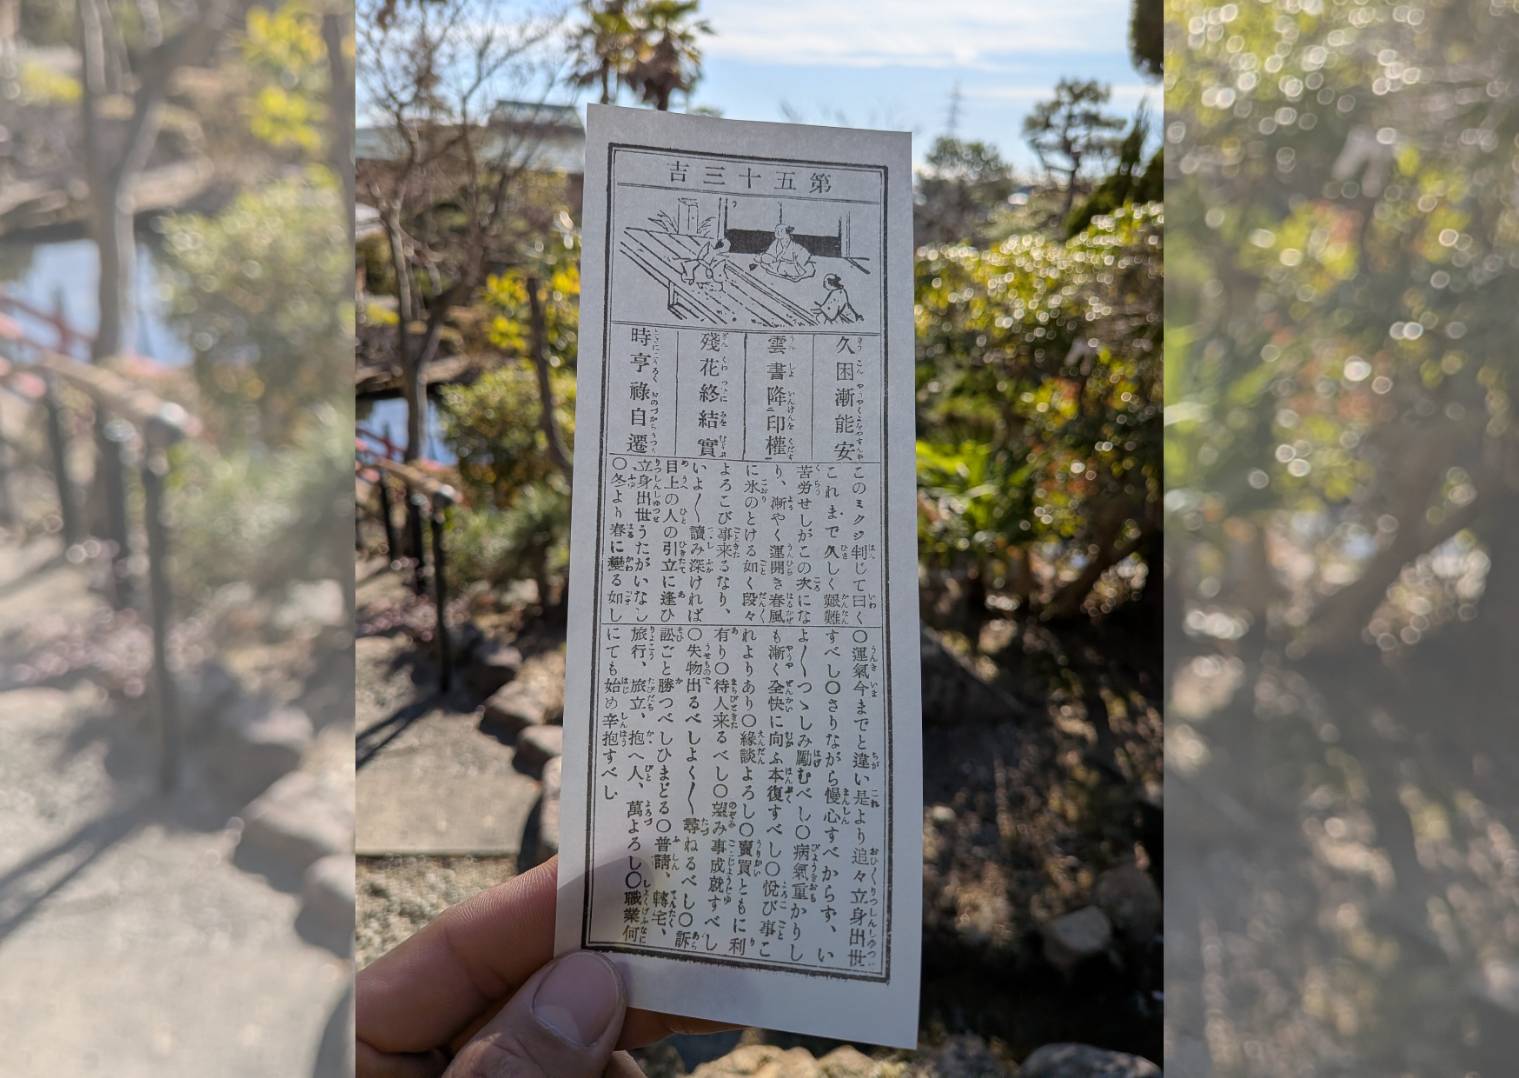 第五十三吉
久困漸能安
雲書降印權
殘花終結實
時亨祿自遷
このミクジ判じて曰く
これまで久しく艱難
苦労せしがこの次にな
り、漸やく運開き春風
に氷のとける如く段々
よろこび事来るなり、
いよ〱讀み深ければ
目上の人の引立に逢ひ
立身出世うたがいなし
〇冬より春に變る如し
〇運氣今までと違い是より追々立身出世
すべし〇さりながら慢心すべからず、い
よ〱つゝしみ勵むべし〇病氣重かりし
も漸く全快に向ふ本復すべし〇悦び事こ
れよりあり〇緣談よろし〇賣買ともに利
有り〇待人来るべし〇望み事成就すべし
〇失物出るべしよく〱尋ねるべし〇訴
訟ごと勝つべしひまどる〇普請、轉宅、
旅行、旅立、抱へ人、萬よろし〇職業何
にても始め辛抱すべし